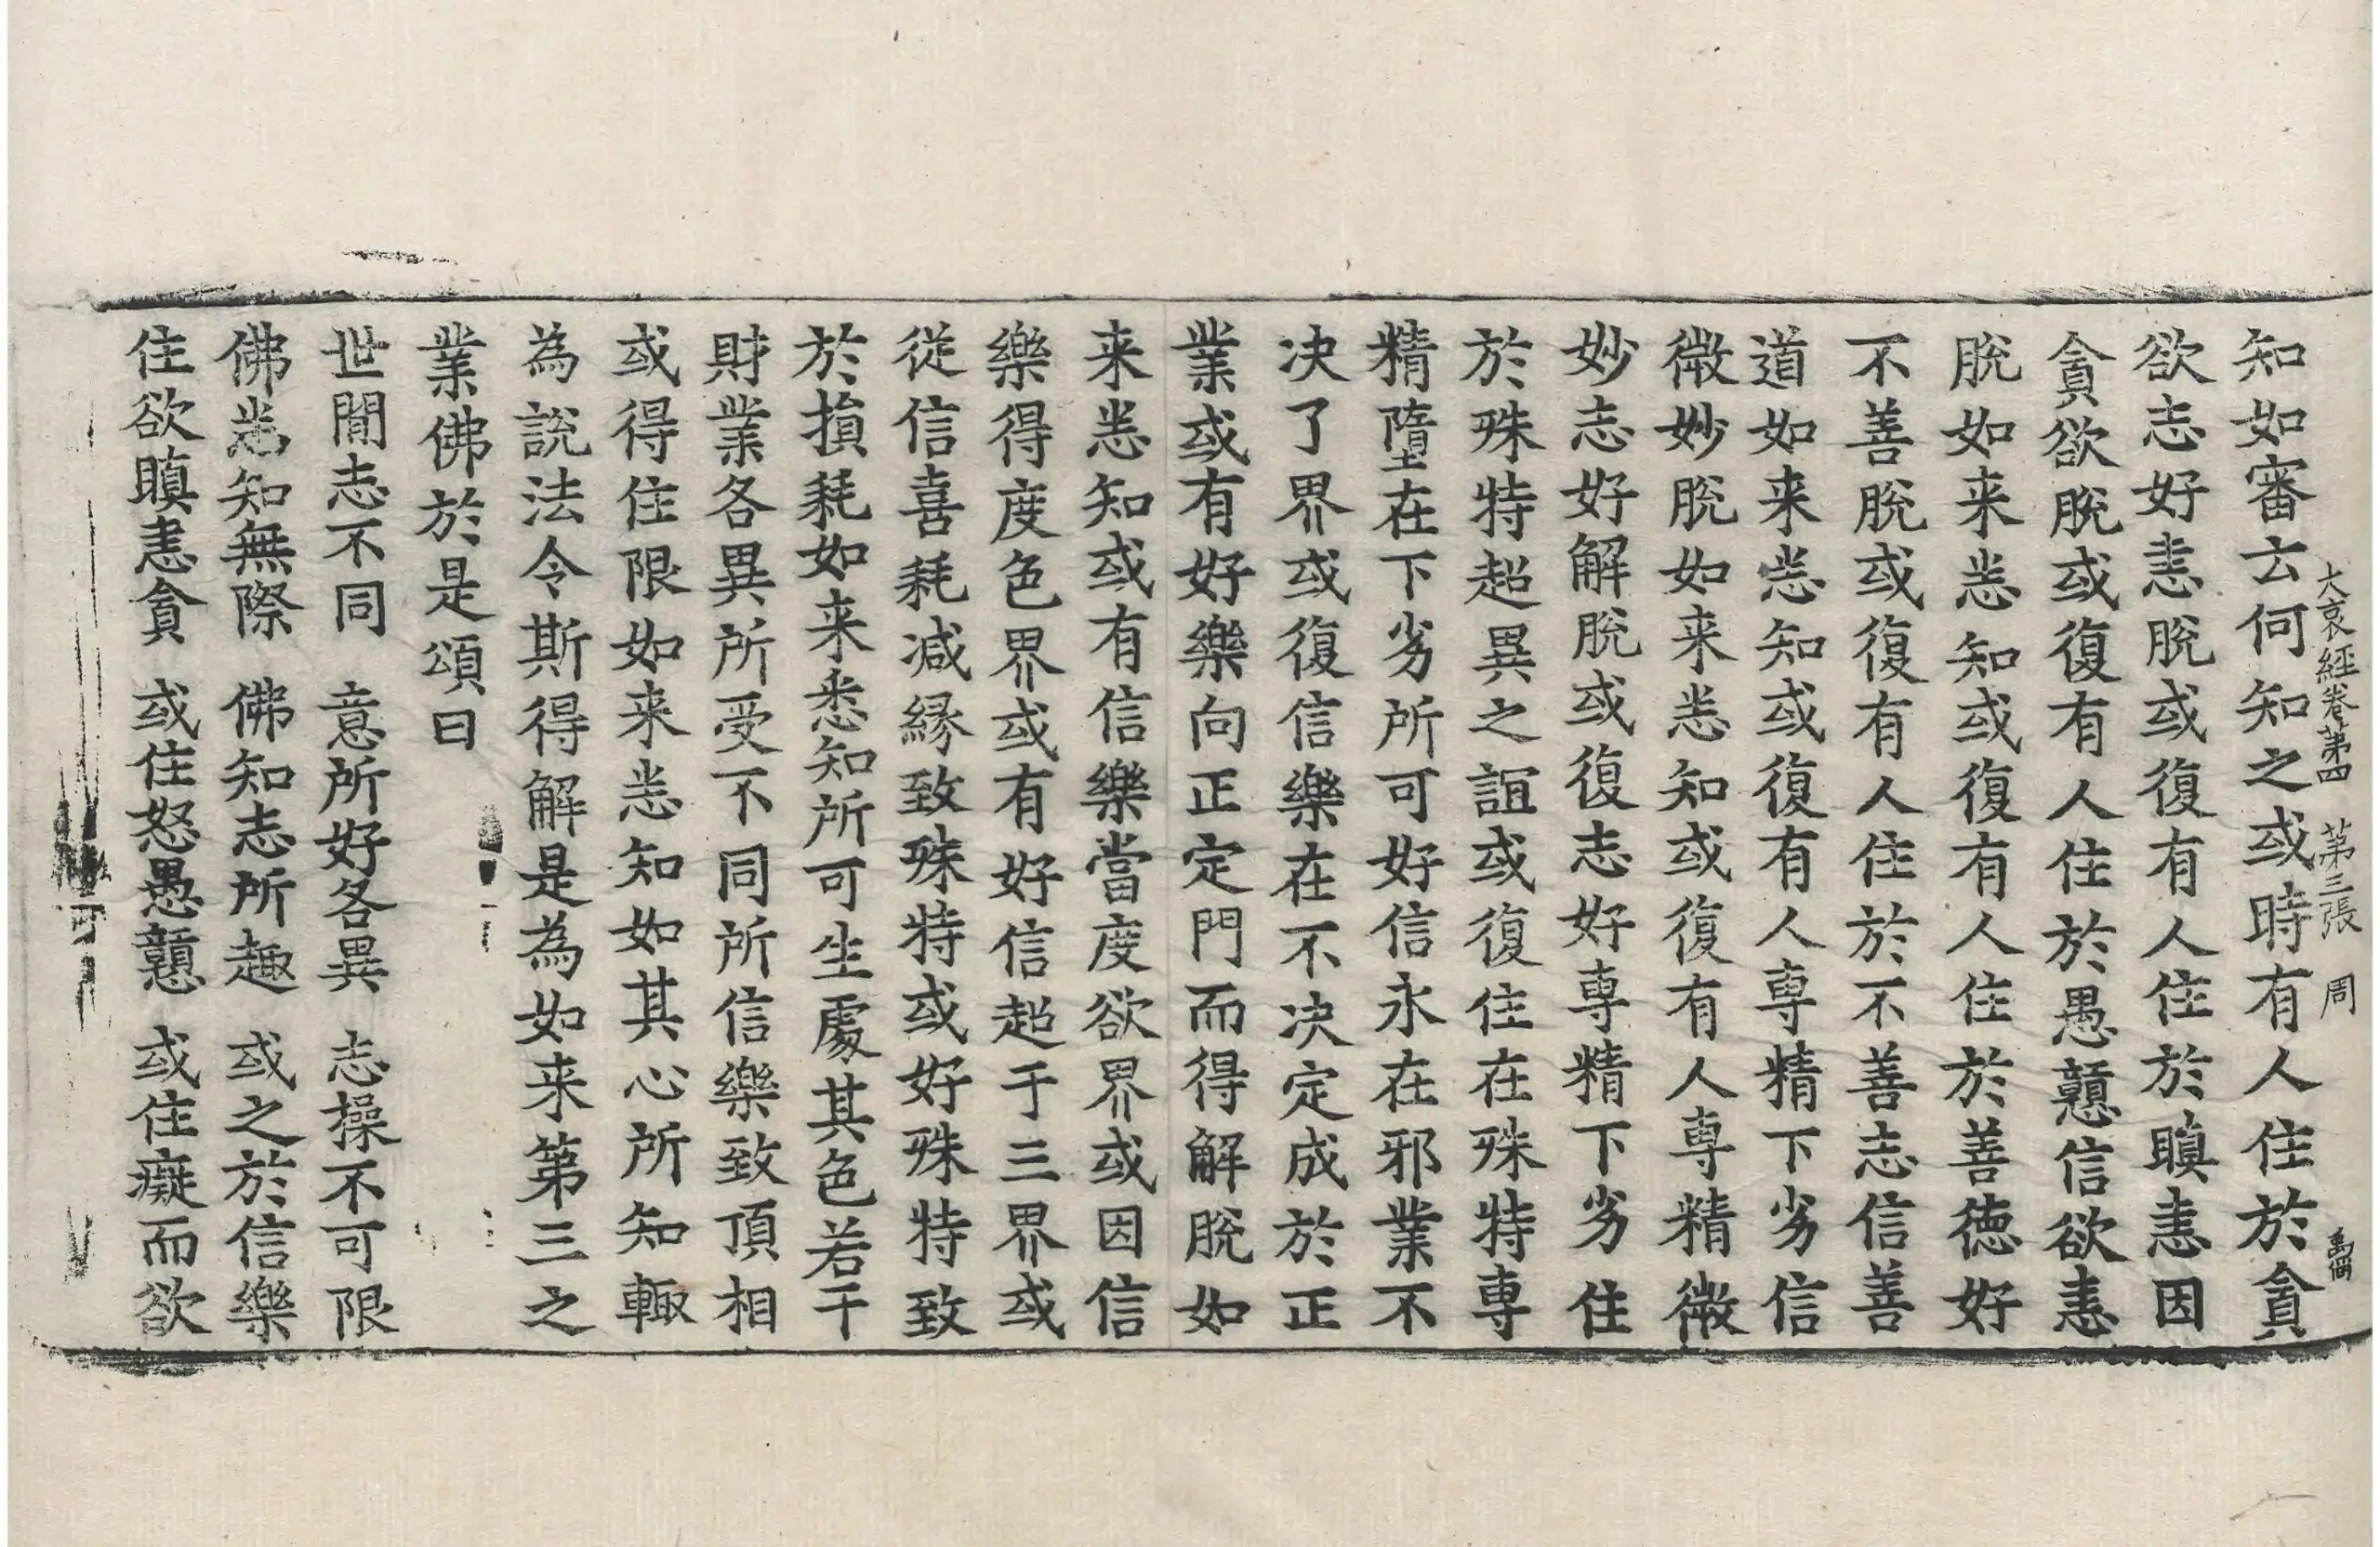 大哀經卷第四　第三張　周
知如審云何知之或時有人住於貪
欲志好恚脫或復有人住於瞋恚因
貪欲脫或復有人住於愚戇信欲恚
脫如来悉知或復有人住於善德好
不善脫或復有人住於不善志信善
道如来悉知或復有人專精下劣信
微妙脫如来悉知或復有人專精微
妙志好解脫或復志好專精下劣住
於殊特超異之誼或復住在殊特專
精墮在下劣所可好信永在邪業不
决了界或復信樂在不决定成於正
業或有好樂向正定門而得解脫如
来悉知或有信樂當度欲界或因信
樂得度色界或有好信超于三界或
從信喜耗减緣致殊特或好殊特致
於損耗如来悉知所可生處其色若干
財業各異所受不同所信樂致頂相
或得住限如来悉知如其心所知輙
為說法令斯得解是為如来第三之
業佛於是頌曰
世間志不同　意所好各異　志操不可限
佛悉知無際　佛知志所趣　或之於信樂
住欲瞋恚貪　或住怒愚戇　或住癡而欲